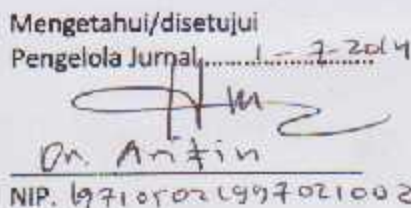 Mengetahui/disetujui
Pengelola Jurnal........1 - 7-2014
Dr. Antin
NIP. 197105021997021002